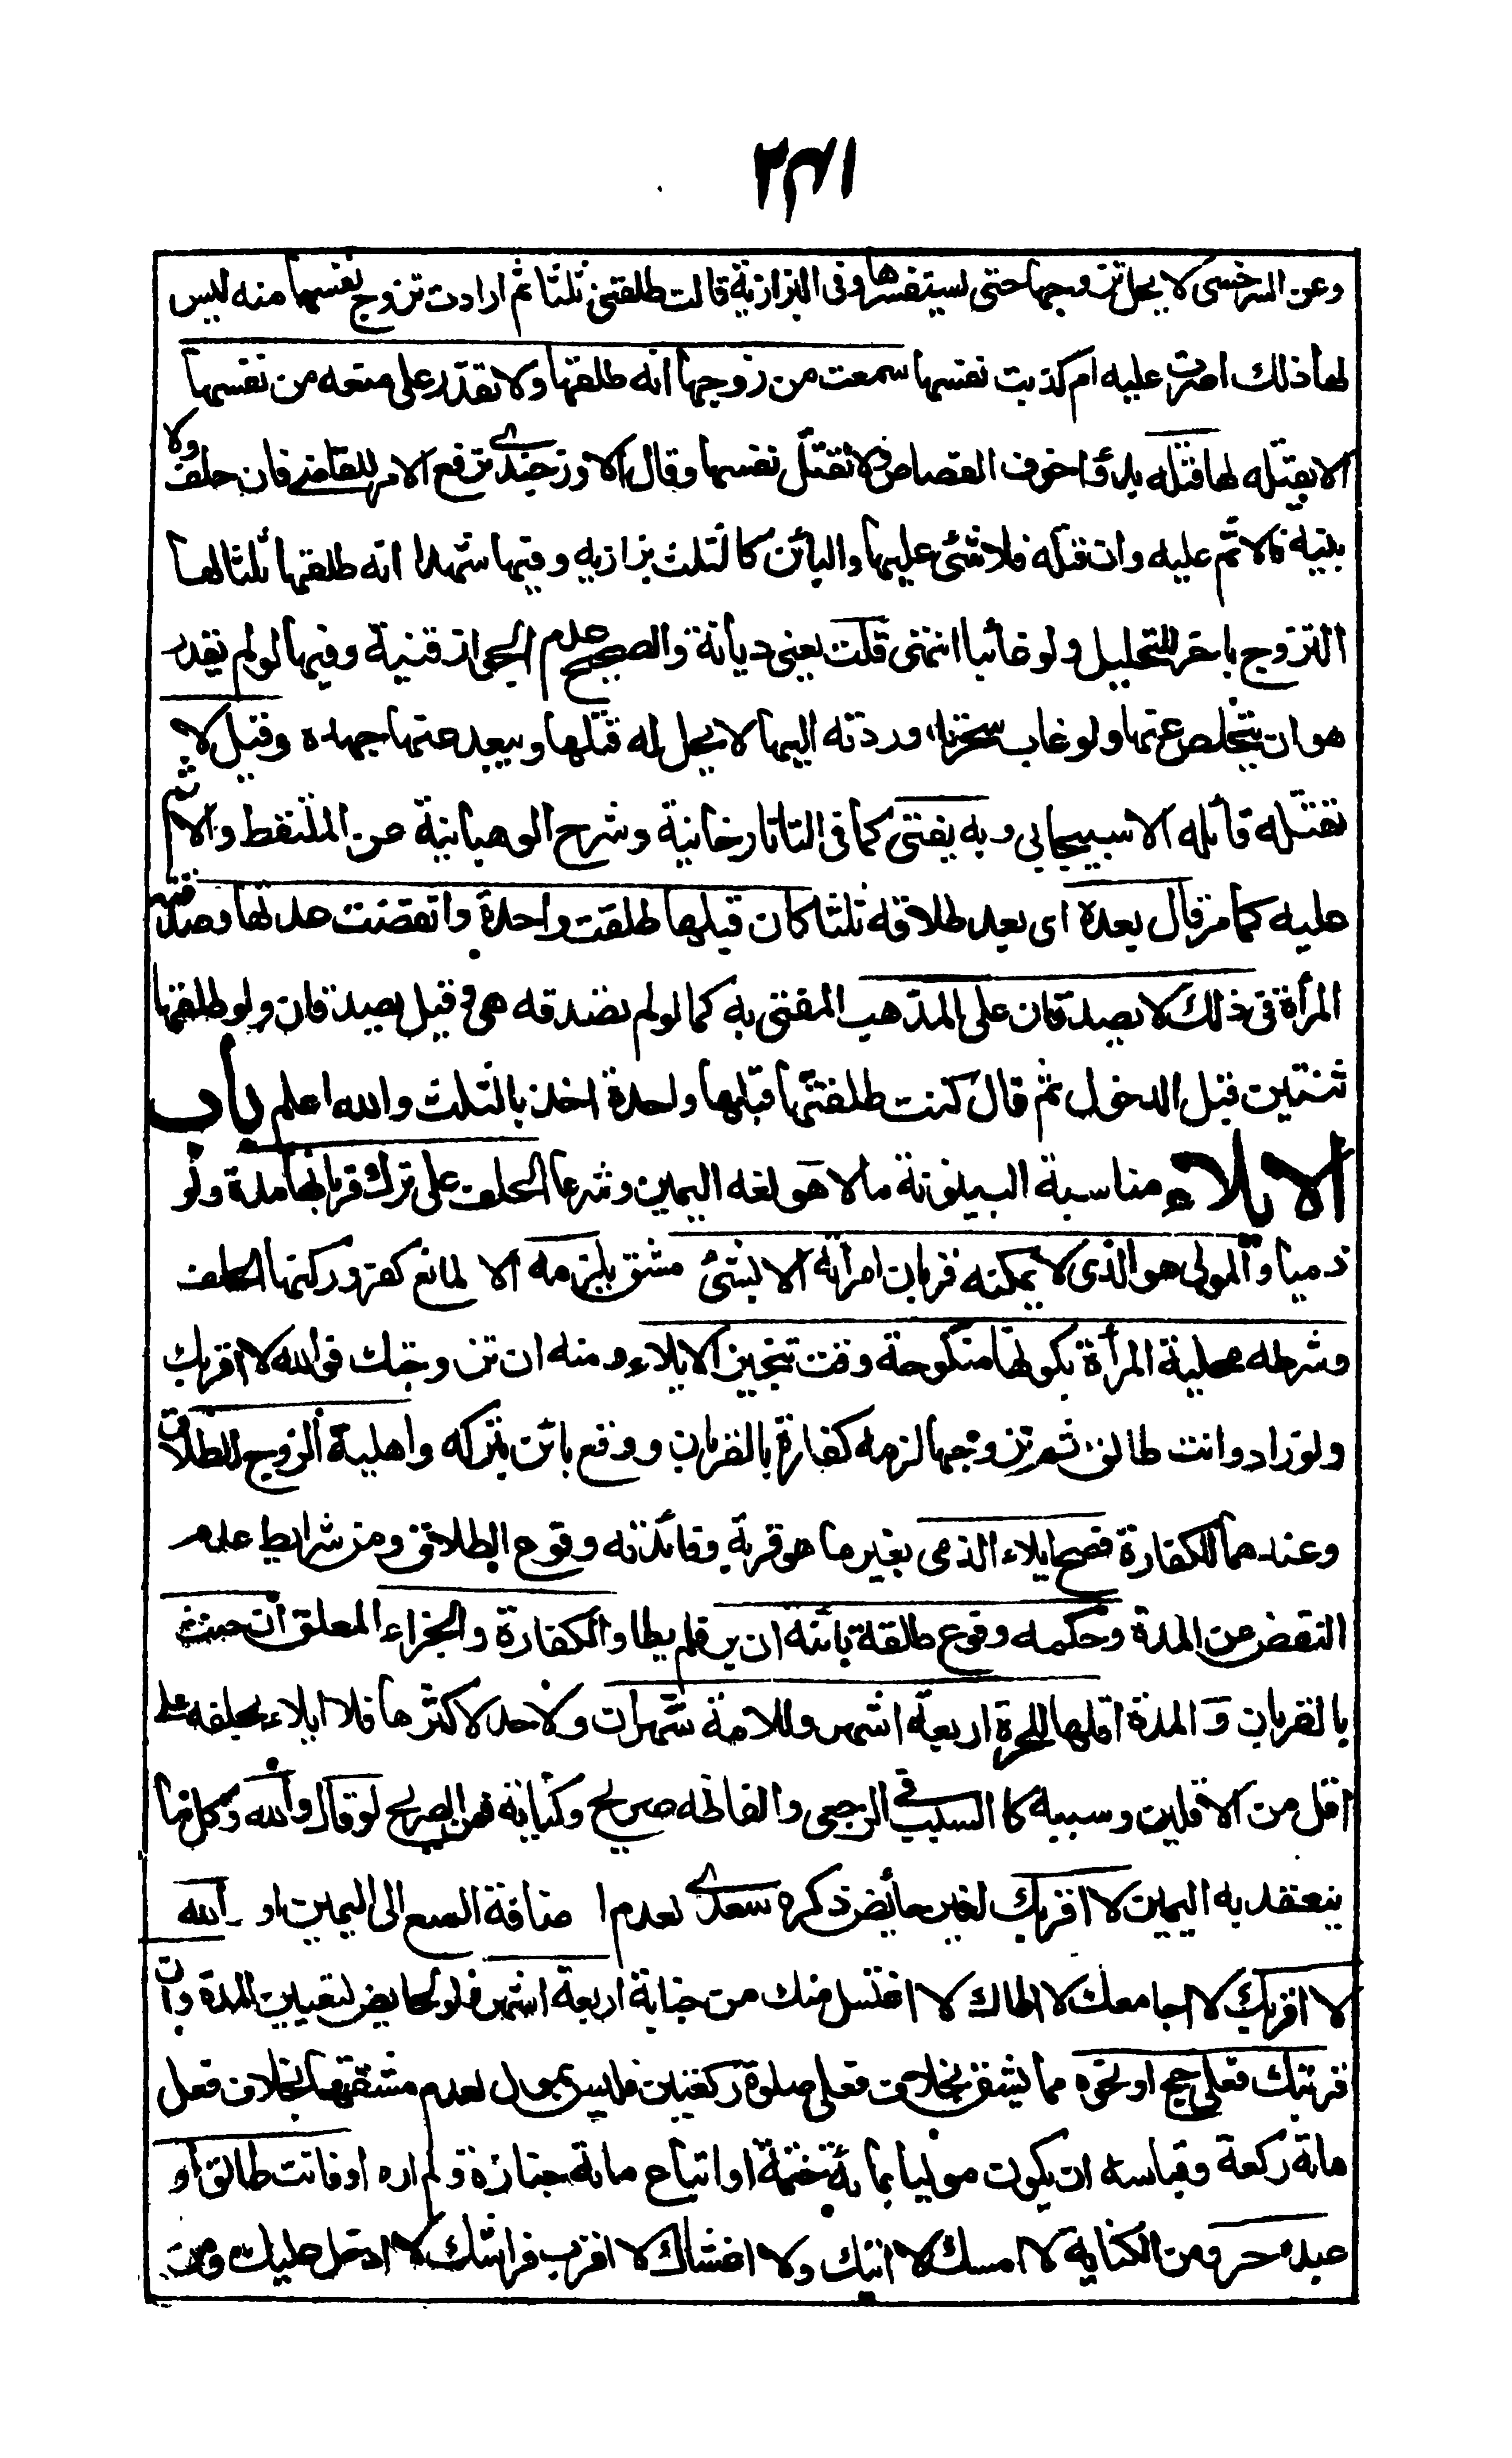 ٢٣١
وعن السرخسى لا يحل تزوجها حتى يستفسرها وفى البزازية قالت طلقنى ثلثا ثم ارادت تزوج نفسها منه ليس
لها ذلك اصرت عليه ام كذبت نفسها سمعت من زوجها انه طلقها ولا تقدر على منعه من نفسها
الا بقتله لها قتله بدواء خوف القصاص ولا تقتل نفسها وقال الاوزجندى ترفع الامر للقاضى فان حلف ولا
بينة فالاثم عليه وان قتله فلا شئ عليها والبائن كالثلث بزازيه وفيها شهدا انه طلقها ثلثا لها
التزوج باخر للتحليل ولو غائبا انتهى قلت يعنى ديانة والصحيح عدم الجواز قنية وفيها لو لم يقدر
هو ان يتخلص عنها ولو غاب سحرته وردته اليها لا يحل له قتلها ويبعد عنها جهده وقيل لا
تقتله قائله الاسبيجابى وبه يفتى كما فى التاتارخانية وشرح الوهبانية عن الملتقط والاثم
عليه كما مر قال بعده اى بعد طلاقه ثلثا كان قبلها طلقت واحدة وانقضت عدتها وصدقته
المرأة فى ذلك لا يصدقان على المذهب المفتى به كما لو لم تصدقه هى وقيل يصدقان ولو طلقها
ثنتين قبل الدخول ثم قال كنت طلقتها قبلها واحدة اخذ بالثلث والله اعلم باب
الايلاء مناسبة البينونة مالا هو لغه اليمين وشرعا الحلف على ترك قربانها مدة ولو
ذميا والمولى هو الذى لا يمكنه قربان امرأته الا بشئ مشق يلزمه الا لمانع كفر وركنها الحلف
وشرطه محلية المرأة بكونها منكوحة وقت تنجيز الايلاء ومنه ان تزوجتك فوالله لا اقربك
ولو زاد وانت طالق ثم تزوجها لزمه كفارة بالقربان ووقع بائن بتركه واهلية الزوج للطلاق
وعندهما للكفارة فصح ايلاء الذمى بغير ما هو قربة وفائدته وقوع الطلاق ومن شرايط عدم
النقض عن المدة وحكمه وقوع طلقة بائنه ان بر فلم يطا والكفارة والجزاء المعلق ان حنث
بالقربان و المدة اقلها للحرة اربعة اشهر وللامة شهران ولا حد لاكثرها فلا ايلاء بحلفه على
اقل من الاقلين وسببه كالسبب فى الرجعى والفاظه صريح وكناية فمن الصريح لو قال والله وكل ما
ينعقد به اليمين لا اقربك لغير حائض ذكره سعدى لعدم اضافة المنع الى اليمين او والله
لا اقربك لا اجامعك لا اطاك لا اغتسل منك من جنابة اربعة اشهر ولو لحايض لتعيين المدة وان
قربتك فعلى حج او نحوه مما يشق بخلاف فعلى صلوة ركعتين فليس بمول لعدم مشقتهما بخلاف فعلى
مائة ركعة وقياسه ان يكون موليا بمائة ختمة او اتباع مائة جنازة ولم اره او فانت طالق او
عبده حر ومن الكناية لا امسك لا اتيك ولا اغشاك لا اقرب فراشك لا ادخل عليك ومن